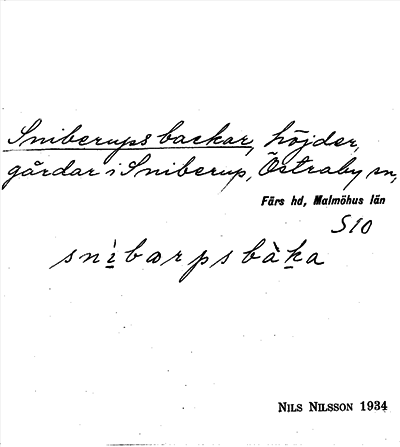 Sniberups backar, höjder,
gårdar i Sniberup, Östraby sn,
Färs hd, Malmöhus län
S10
snìbarpsbàka
NILS NILSSON 1934